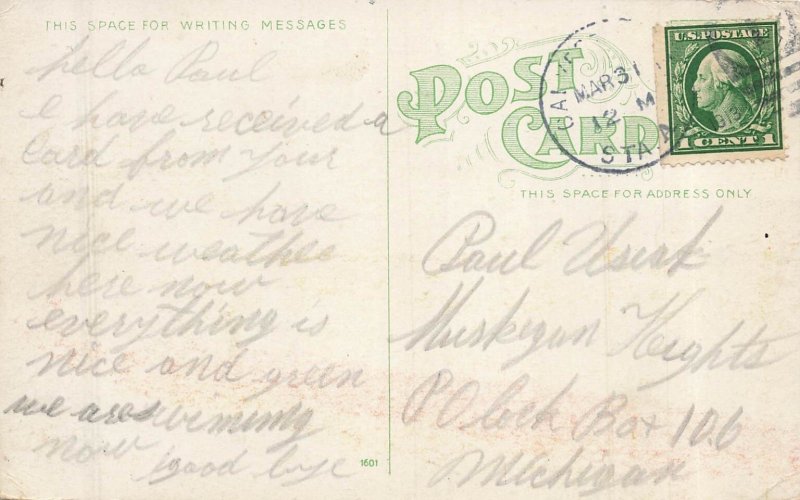 THIS SPACE FOR WRITING MESSAGES
hello Paul
I have received a
Card from your
and we have
nice weather
here now
everything is
nice and green
we are swiming
now good bye
1601
POST
CARD
MAR 31
12 M
STA. A
U.S. POSTAGE
1 CENT 1
THIS SPACE FOR ADDRESS ONLY
Paul
Muskegon Heights
P O Lock Box 106
Michigan